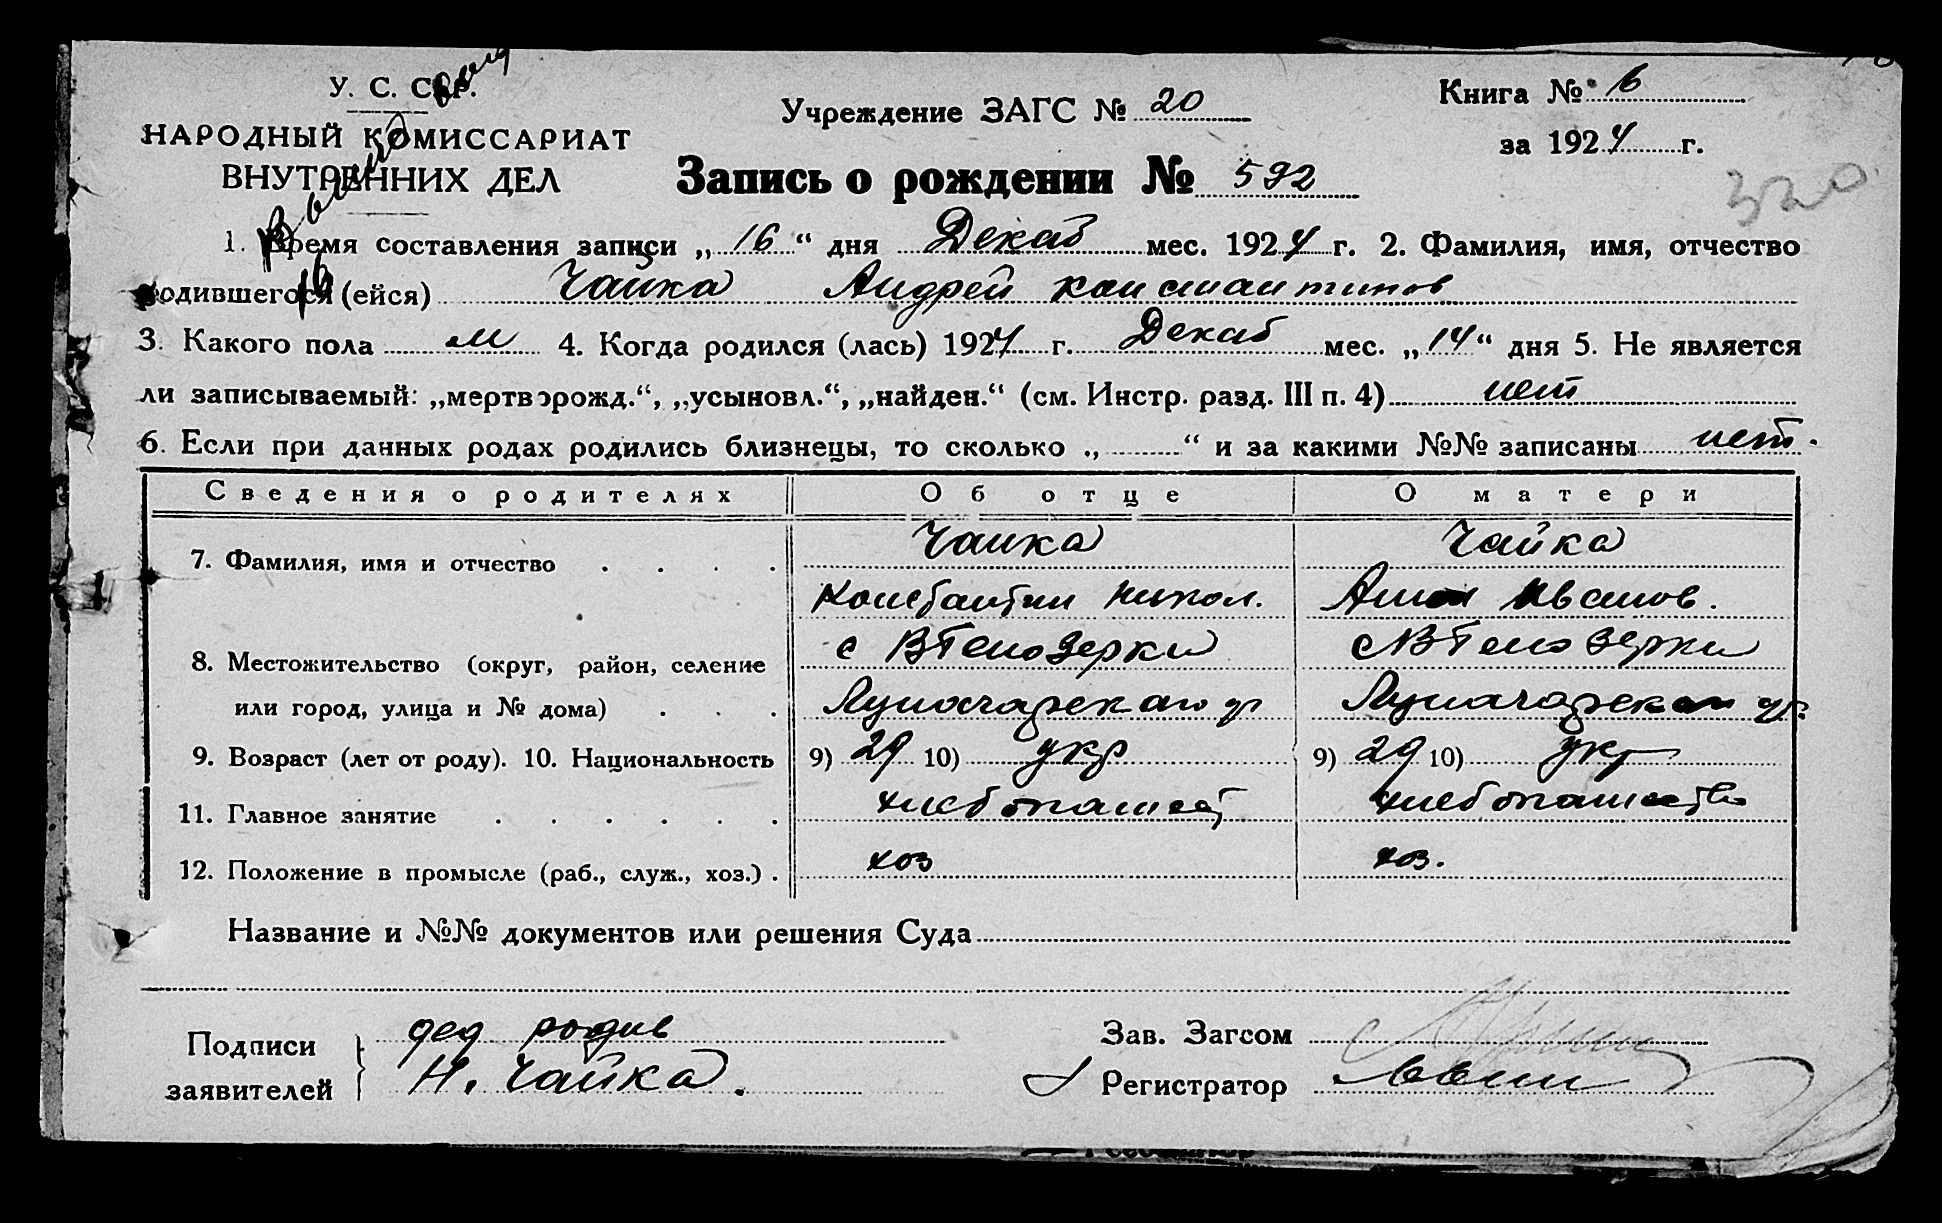 У. С. С. Р.
НАРОДНЫЙ КОМИССАРИАТ
ВНУТРЕННИХ ДЕЛ
Учреждение ЗАГС № 20
Книга № 6
за 1924 г.
Запись о рождении № 592
320
1. Время составления записи „16“ дня Декаб мес. 1924 г. 2. Фамилия, имя, отчество
родившегося (ейся) Чайка Андрей Константинов
3. Какого пола м 4. Когда родился (лась) 1924 г. Декаб мес. „14“ дня 5. Не является
ли записываемый: „мертворожд.“, „усыновл.“, „найден.“ (см. Инстр. разд. III п. 4) нет
6. Если при данных родах родились близнецы, то сколько „ “ и за какими №№ записаны нет.
Сведения о родителях Об отце О матери
7. Фамилия, имя и отчество Чайка Чайка
Константин Никол. Анна Иванов.
8. Местожительство (округ, район, селение с В Белозерки с В Белозерки
или город, улица и № дома)
9. Возраст (лет от роду). 10. Национальность 9) 29 10) укр 9) 29 10) укр
11. Главное занятие хлебопашест хлебопашество
12. Положение в промысле (раб., служ., хоз.) хоз хоз.
Название и №№ документов или решения Суда
Подписи заявителей дед родив
Н. Чайка.
Зав. Загсом
Регистратор